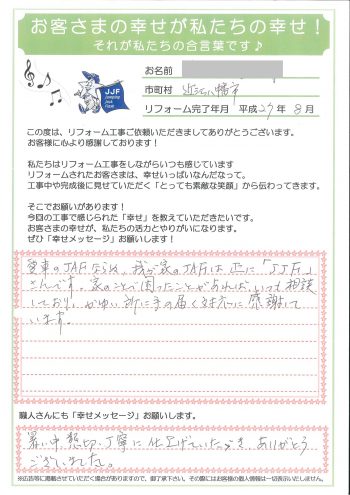 お客さまの幸せが私たちの幸せ！
それが私たちの合言葉です♪
JJF
お名前
市町村 近江八幡市
リフォーム完了年月 平成27年 8月
この度は、リフォーム工事ご依頼いただきましてありがとうございます。
お客様に心より感謝しております！
私たちはリフォーム工事をしながらいつも感じています
リフォームされたお客さまは、幸せいっぱいなんだなって。
工事中や完成後に見せていただく「とっても素敵な笑顔」から伝わってきます。
そこでお願いがあります！
今回の工事で感じられた「幸せ」を教えていただきたいです。
お客さまの幸せが、私たちの活力とやりがいになります。
ぜひ「幸せメッセージ」お願いします！
愛車のJAFならぬ、我が家のJAFは正に「JJF」
さんです。家のことで困ったことがあれば、いつも相談
しており、かゆい所に手の届く対応に感謝して
います。
職人さんにも「幸せメッセージ」お願いします。
暑い中、懇切、丁寧に仕上げていただき、ありがとう
ございました。
※広告等に掲載させていただく場合がありますので、御了承下さい。その際にはお客様の個人情報は一切表示いたしません。